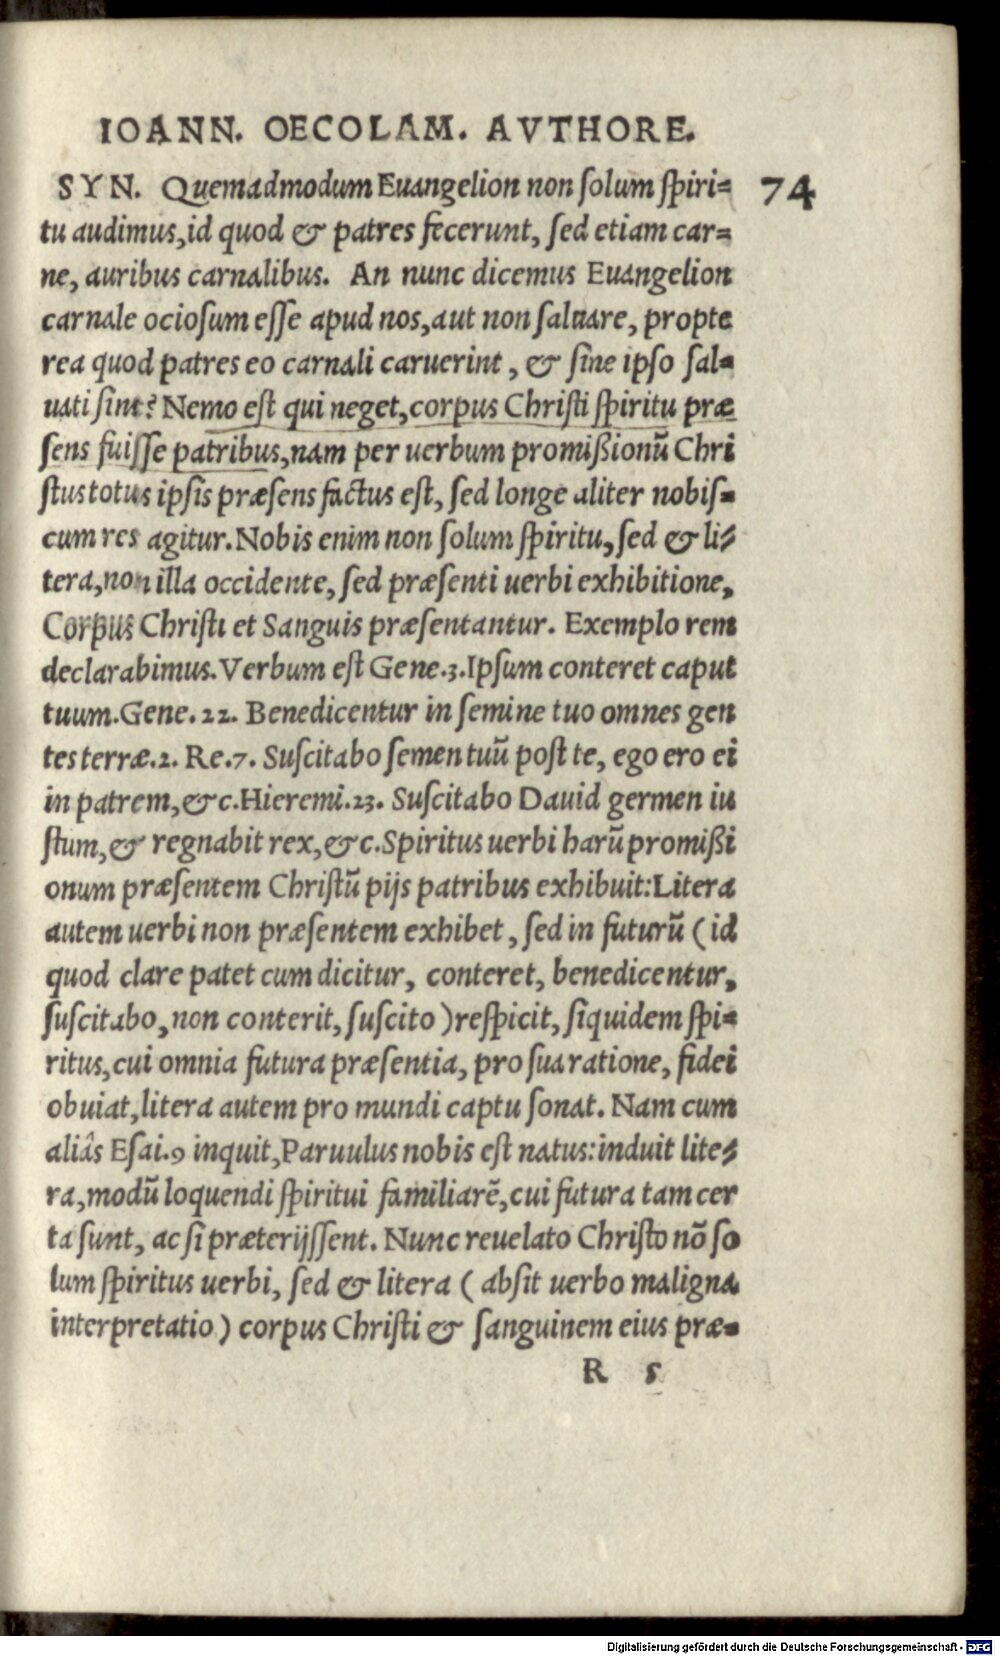 IOANN. OECOLAM. AVTHORE.
SYN. Quemadmodum Euangelion non ſolum ſpiri= 74
tu audimus,id quod & patres fecerunt, ſed etiam car=
ne, auribus carnalibus. An nunc dicemus Euangelion
carnale ocioſum eſſe apud nos,aut non ſaluare, propte
rea quod patres eo carnali caruerint, & ſine ipſo ſal=
uati ſint? Nemo eſt qui neget,corpus Chriſti ſpiritu præ
ſens fuiſſe patribus,nam per uerbum promißionũ Chri
ſtus totus ipſis præſens factus eſt, ſed longe aliter nobiſ=
cum res agitur.Nobis enim non ſolum ſpiritu,ſed & li=
tera,non illa occidente, ſed præſenti uerbi exhibitione,
Corpus Chriſti et Sanguis præſentantur. Exemplo rem
declarabimus.Verbum eſt Gene.3.Ipſum conteret caput
tuum.Gene.22. Benedicentur in ſemine tuo omnes gen
tes terræ.2. Re.7. Suſcitabo ſemen tuũ poſt te, ego ero ei
in patrem,&c.Hieremi.23. Suſcitabo Dauid germen iu
ſtum,& regnabit rex,&c.Spiritus uerbi harũ promißi
onum præſentem Chriſtũ pijs patribus exhibuit:Litera
autem uerbi non præſentem exhibet, ſed in futurũ (id
quod clare patet cum dicitur, conteret, benedicentur,
ſuſcitabo,non conterit, ſuſcito )reſpicit, ſiquidem ſpi=
ritus,cui omnia futura præſentia, pro ſua ratione, fidei
obuiat,litera autem pro mundi captu ſonat. Nam cum
aliâs Eſai.9 inquit,Paruulus nobis eſt natus:induit lite=
ra,modũ loquendi ſpiritui familiarẽ,cui futura tam cer
ta ſunt, ac ſi præterijſſent. Nunc reuelato Chriſto nõ ſo
lum ſpiritus uerbi, ſed & litera ( abſit uerbo maligna
interpretatio) corpus Chriſti & ſanguinem eius præ=
R 5
Digitalisierung gefördert durch die Deutsche Forschungsgemeinschaft - DFG